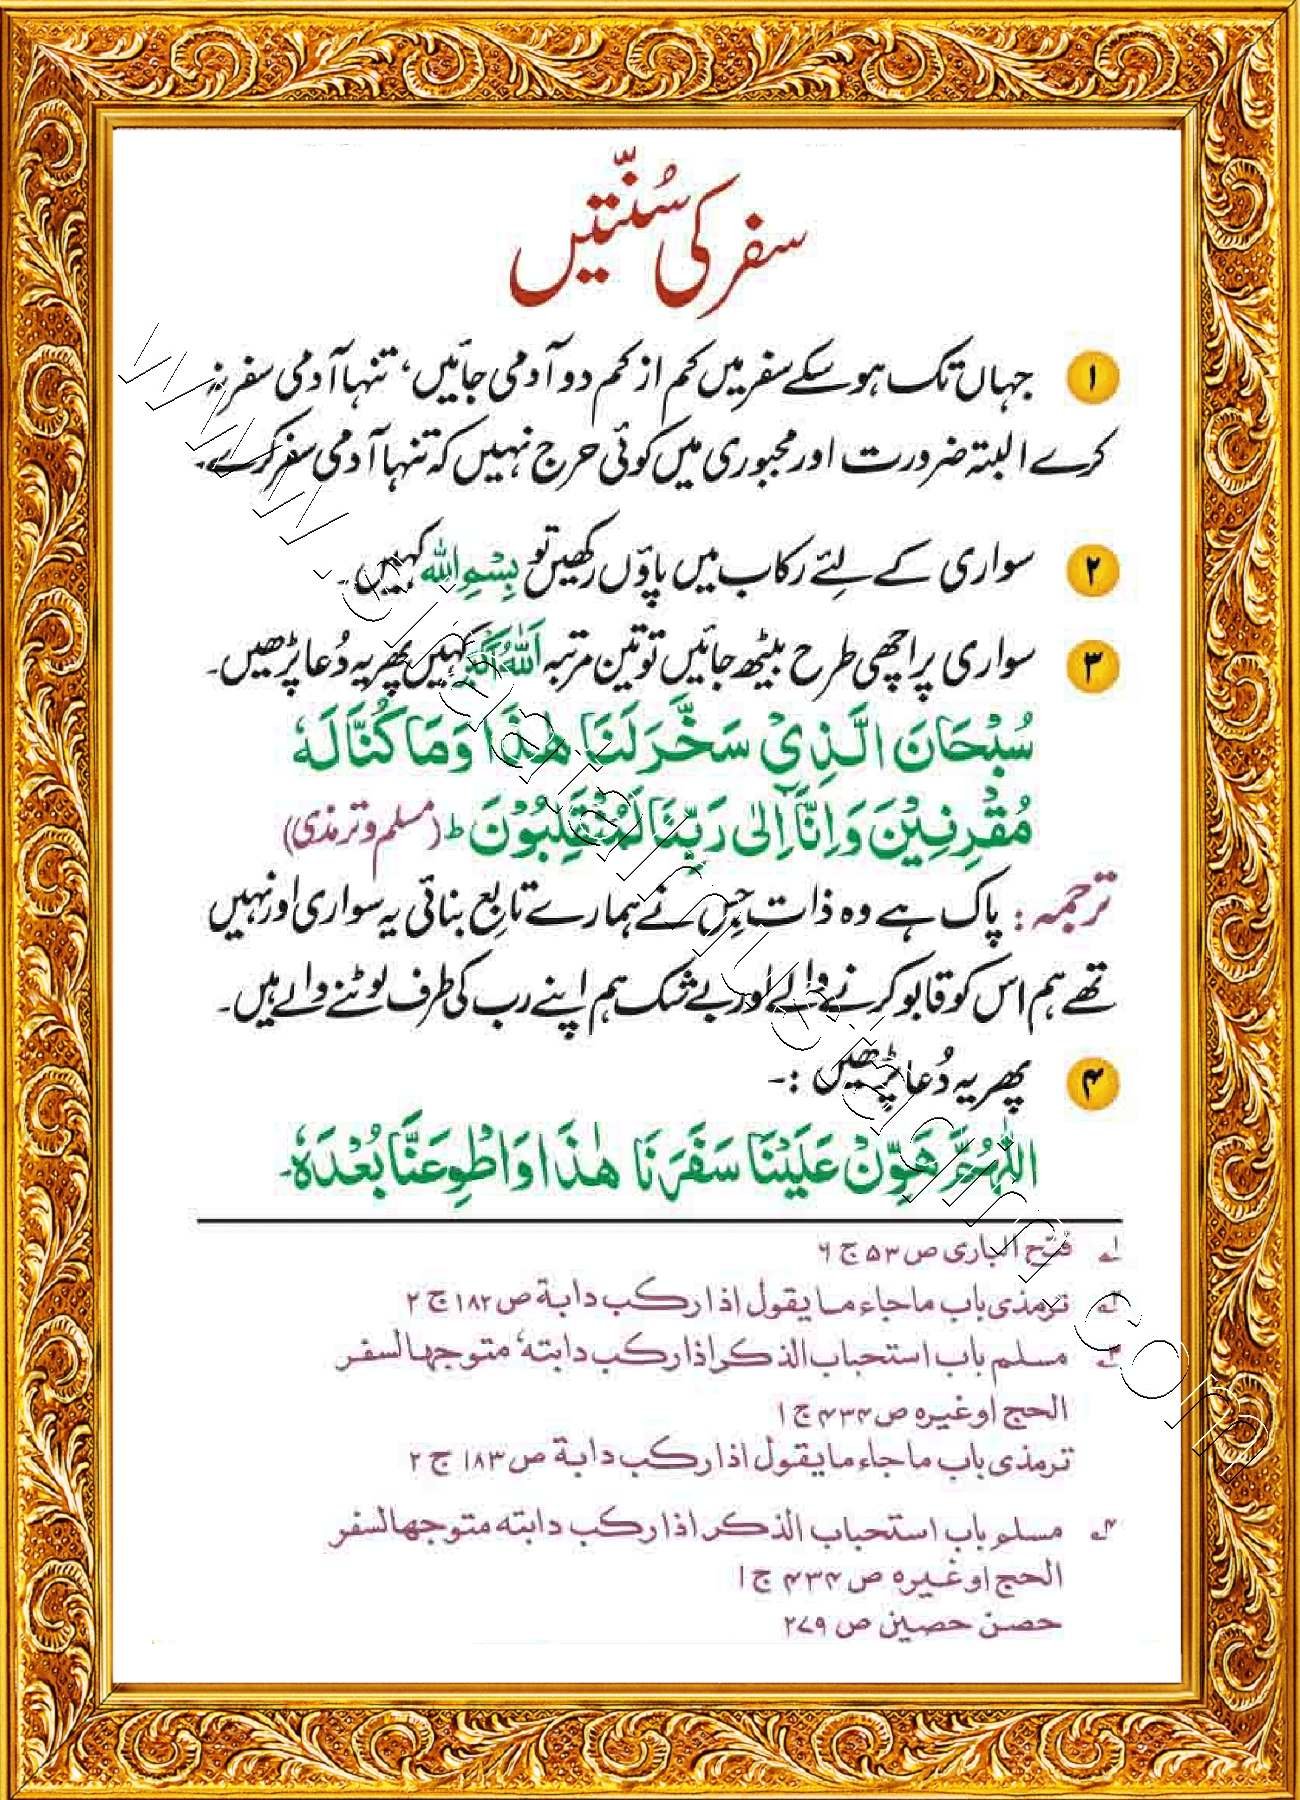 سفر کی سُنّتیں
۱ جہاں تک ہو سکے سفر میں کم از کم دو آدمی جائیں، تنہا آدمی سفر نہ
کرے البتہ ضرورت اور مجبوری میں کوئی حرج نہیں کہ تنہا آدمی سفر کرے۔
۲ سواری کے لئے رکاب میں پاؤں رکھیں تو بِسْمِ اللہ کہیں۔
۳ سواری پر اچھی طرح بیٹھ جائیں تو تین مرتبہ اَللّٰهُ اَكْبَر کہیں پھر یہ دُعا پڑھیں۔
سُبْحَانَ الَّذِیْ سَخَّرَ لَنَا هٰذَا وَمَا كُنَّا لَهٗ
مُقْرِنِیْنَ وَاِنَّآ اِلٰى رَبِّنَا لَمُنْقَلِبُوْنَ ؕ (مسلم و ترمذی)
ترجمہ : پاک ہے وہ ذات جس نے ہمارے تابع بنائی یہ سواری اور نہیں
تھے ہم اس کو قابو کرنے والے اور بے شک ہم اپنے رب کی طرف لوٹنے والے ہیں۔
۴ پھر یہ دُعا پڑھیں :۔
اللّٰهُمَّ هَوِّنْ عَلَیْنَا سَفَرَنَا هٰذَا وَاطْوِعَنَّا بُعْدَهٗ۔
۱؎ فتح الباری ص ۵۳ ج ۶
۲؎ ترمذی باب ماجاء ما یقول اذا رکب دابة ص ۱۸۲ ج ۲
۳؎ مسلم باب استحباب الذکر اذا رکب دابتہٗ متوجھا لسفر
الحج او غیرہ ص ۴۳۴ ج ۱
ترمذی باب ماجاء ما یقول اذا رکب دابة ص ۱۸۳ ج ۲
۴؎ مسلم باب استحباب الذکر اذا رکب دابتہ متوجھا لسفر
الحج او غیرہ ص ۴۳۴ ج ۱
حصن حصین ص ۲۷۹